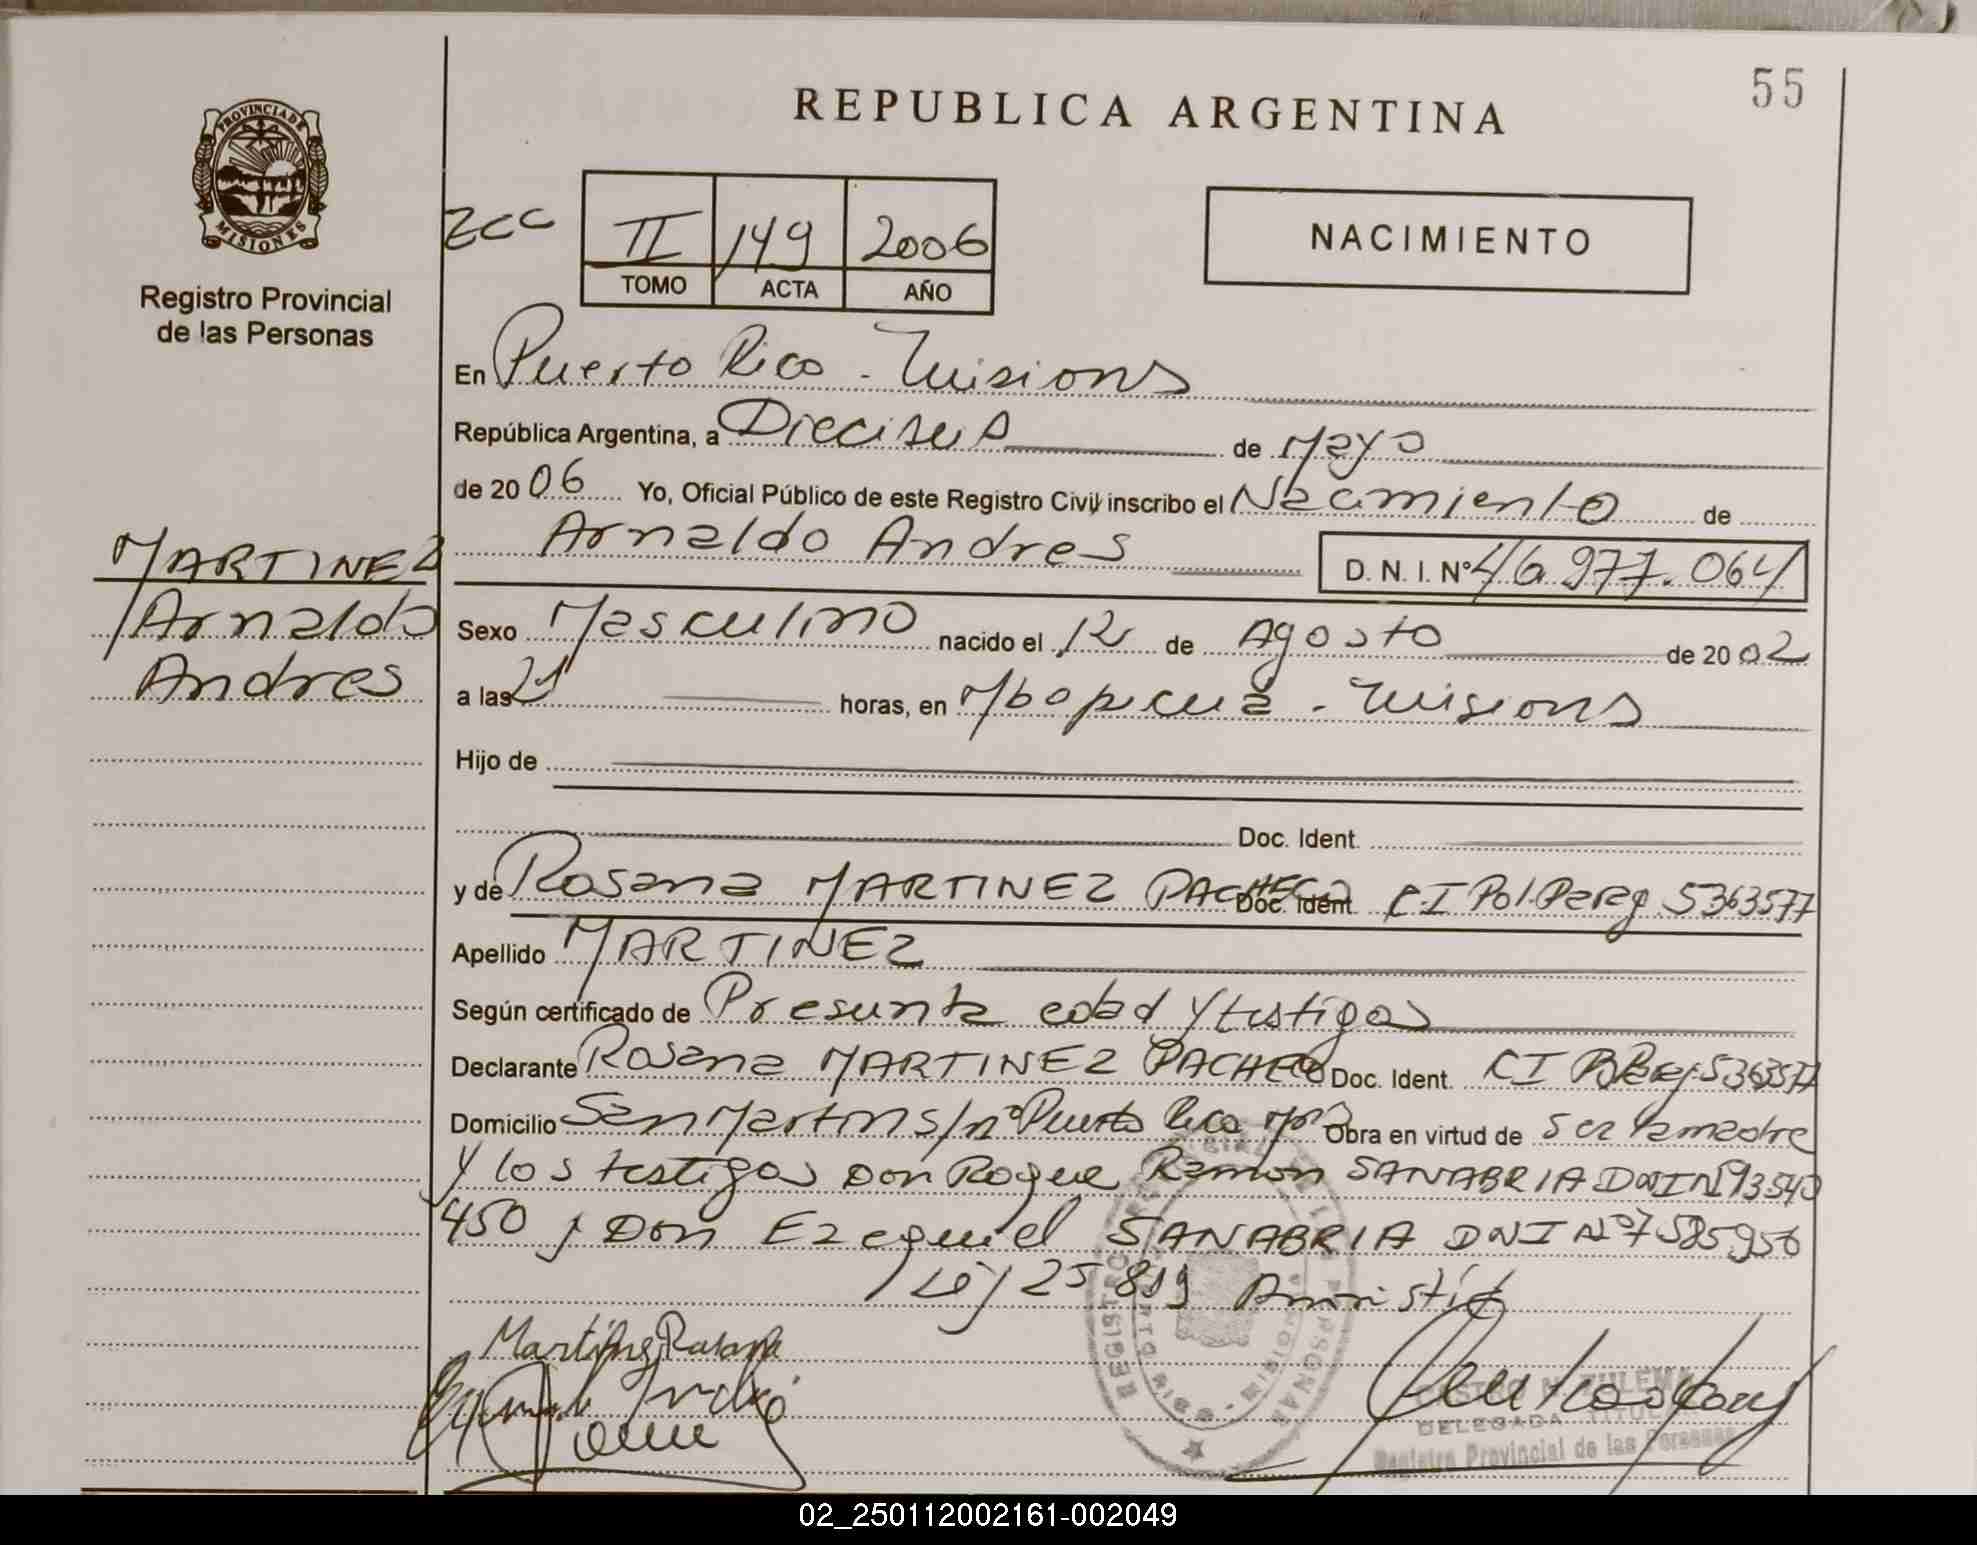 55
REPUBLICA ARGENTINA
PROVINCIA DE
MISIONES
Registro Provincial
de las Personas
II 149 2006
TOMO ACTA AÑO
NACIMIENTO
En Puerto Rico - Misiones
República Argentina, a Dieciseis de Mayo
de 20 06 Yo, Oficial Público de este Registro Civil inscribo el Nacimiento de
Arnaldo Andres D. N. I. Nº 46.977.064
MARTINEZ
Arnaldo
Andres
Sexo Masculino nacido el 12 de Agosto de 20 02
a las 21 horas, en Mbopicua - Misiones
Hijo de
Doc. Ident.
y de Rosana MARTINEZ PACHECO Doc. Ident. C.I Pol. Parag 5363577
Apellido MARTINEZ
Según certificado de Presunta edad y testigos
Declarante Rosana MARTINEZ PACHECO Doc. Ident. CI 5363577
Domicilio San Martin s/nº Puerto Rico Mnes Obra en virtud de ser la madre
y los testigos Don Roque Ramon SANABRIA DNI Nº 93540
450 y Don Ezequiel SANABRIA DNI Nº 7585956
Ley 25819 Amnistia
Martinez Rosana
CASTRO N. ZULEMA
DELEGADA TITULAR
Registro Provincial de las Personas
02_250112002161-002049